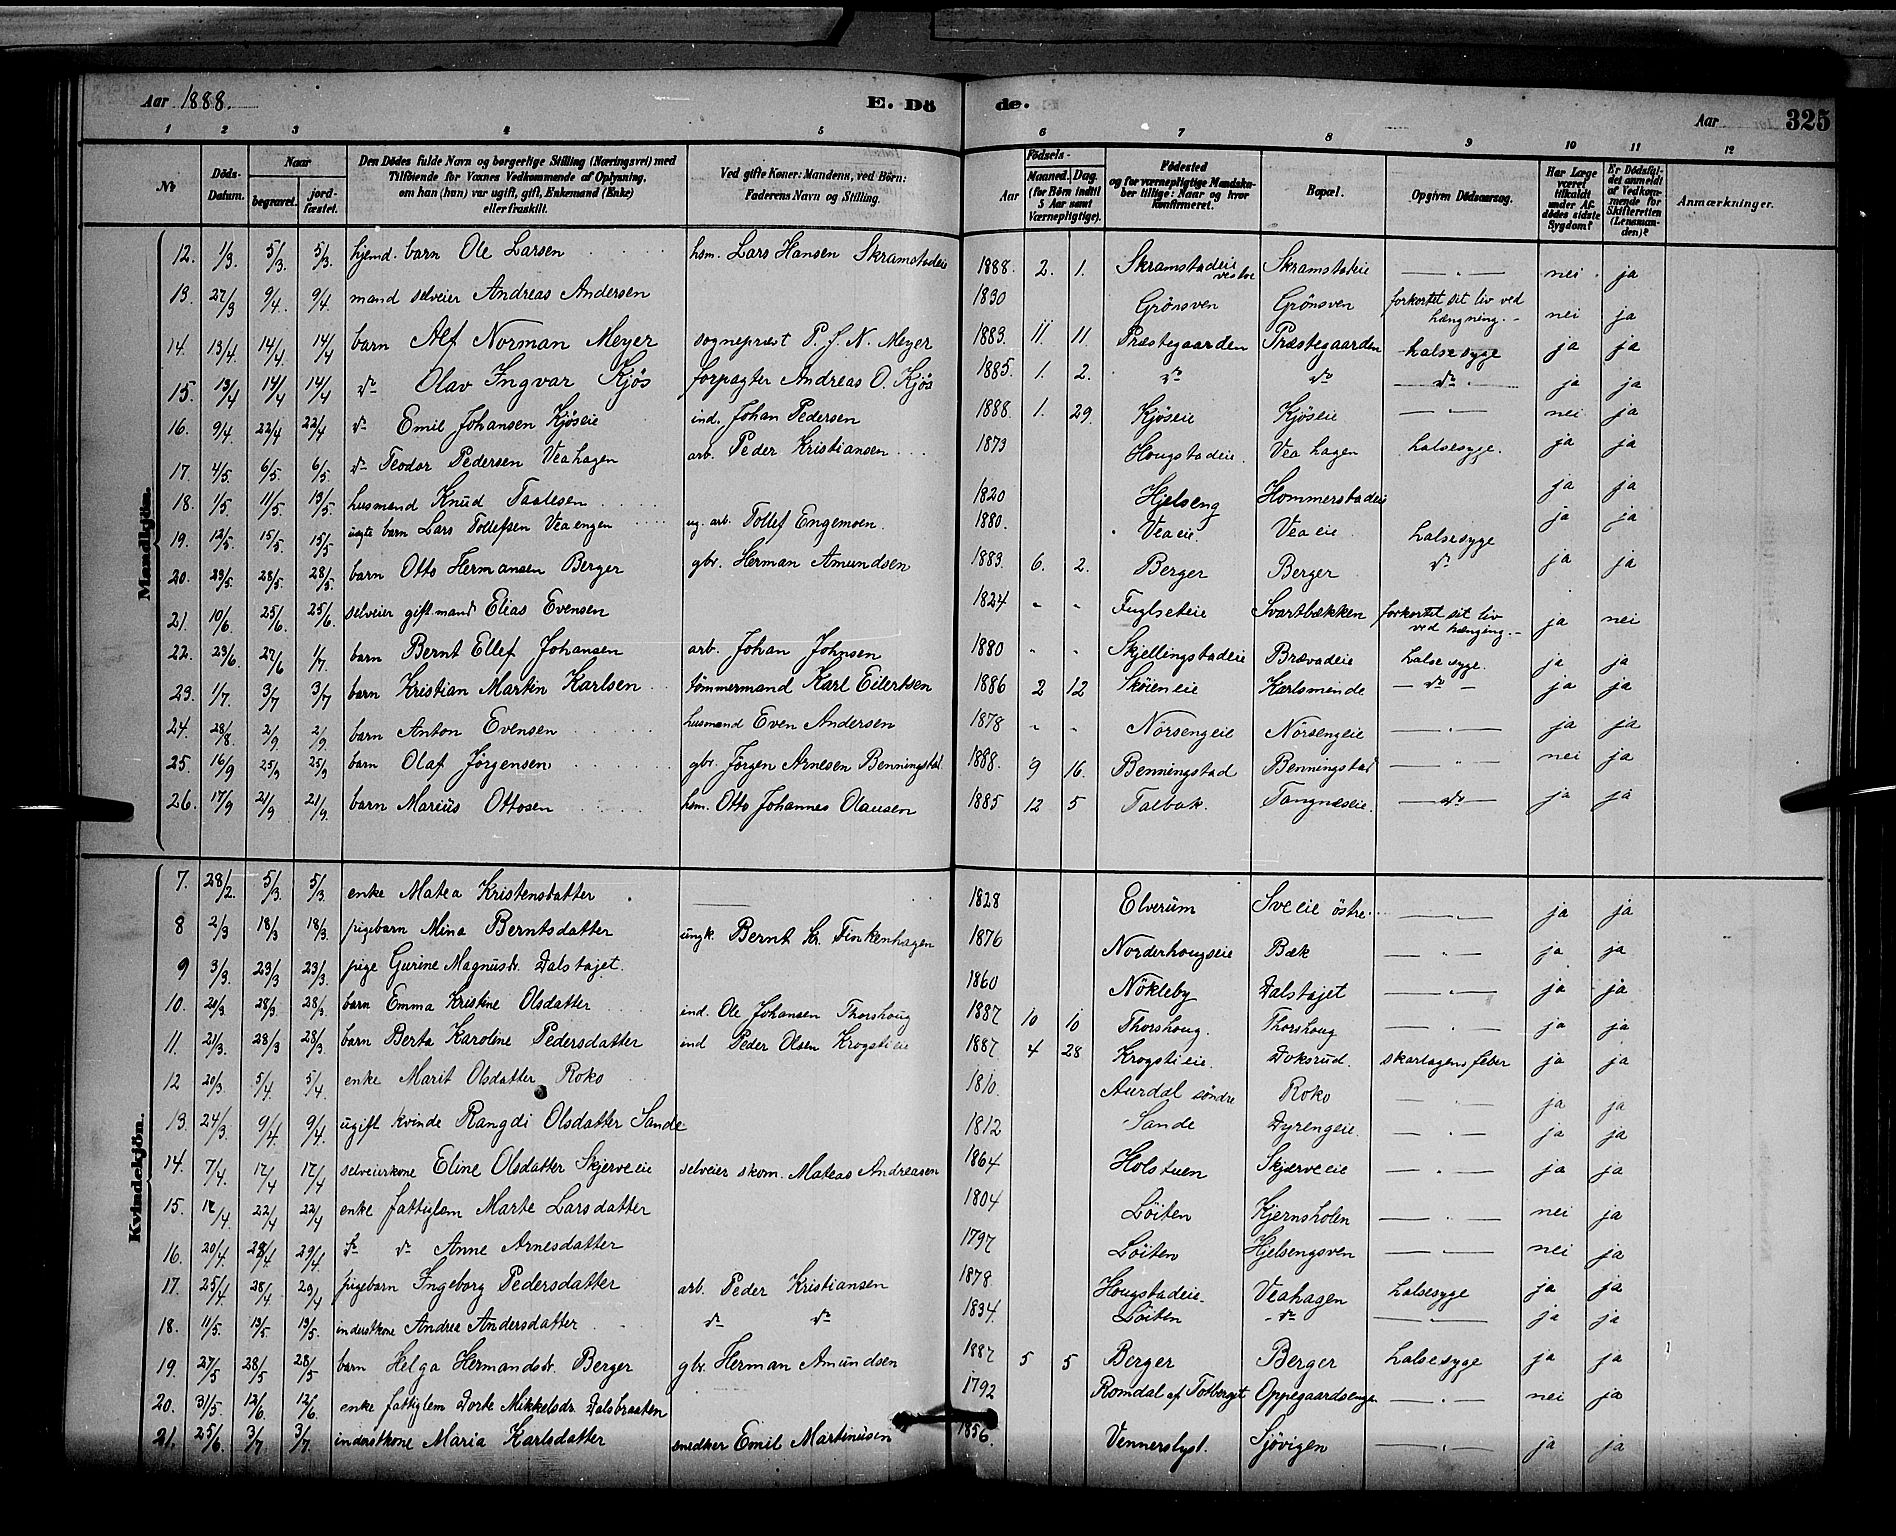 Aar 1888. E. Dö de. Aar 325
1 2 3 4 5 6 7 8 9 10 11 12
№
Döds-Datum.
Naar
begravet.
jord-fæstet.
Den Dödes fulde Navn og borgerlige Stilling (Næringsvei) med
Tilföiende for Voxnes Vedkommende af Oplysning,
om han (hun) var ugift, gift, Enkemand (Enke)
eller fraskilt.
Ved gifte Koner: Mandens, ved Börn:
Faderens Navn og Stilling.
Födsels-
Aar
Maaned.
Dag
(for Börn indtil
5 Aar samt
Værnepligtige).
Födested
og for værnepligtige Mandska-
ber tillige: Naar og hvor
konfirmeret.
Bopæl.
Opgiven Dödsaarsag.
Har Læge
været
tilkaldt
under Af-
dödes sidste
Sygdom?
Er Dödsfal-
det anmeldt
af Vedkom-
mende for
Skifteretten
(Lensman-
den)?
Anmærkninger.
Mandkjön.
12. 1/3. 5/3. 5/3. hjemd. barn Ole Larsen hsm. Lars Hansen Skramstadeie 1888. 2. 1. Skramstadeie vestre Skramstadeie — " — nei. ja
13. 27/3 9/4. 9/4. mand selveier Andreas Andersen 1830 Grönsven Grönsven forkortet sit liv ved hængning. – nei ja
14. 13/4. 14/4. 14/4 barn Alf Norman Meyer sognepræst P. J. N. Meyer 1883. 11. 11. Præstegaarden Præstegaarden halsesyge ja ja
15. 13/4 14/4 14/4 do Olav Ingvar Kjös forpagter Andreas O. Kjös 1885. 1. 2. do do — do — ja ja
16. 9/4. 22/4 22/4 do Emil Johansen Kjöseie ind. Johan Pedersen 1888. 1. 29. Kjöseie Kjöseie — " — nei ja
17. 4/5. 6/5. 6/5. do Teodor Pedersen Veahagen arb. Peder Kristiansen 1873 Hougstadeie. Veahagen halsesyge. ja ja
18. 1/5. 11/5. 13/5. husmand Knud Taalesen 1820 Hjelseng Hommerstadeie ja ja
19. 12/5. 15/5. 15/5. uægte barn Lars Tollefsen Veaengen ug. arb. Tollef Engemoen. 1880. Veaeie Veaeie halsesyge ja ja
20. 23/5. 28/5. 28/5. barn Otto Hermansen Berger gbr. Herman Amundsen 1883. 6. 2. Berger Berger do ja ja
21. 10/6. 25/6. 25/6. selveier gift mand Elias Evensen 1824 " " Fuglseteie Svartbækken forkortet sit liv ved hænging. – ja nei
22. 23/6. 27/6 1/7. barn Bernt Ellef Johansen arb. Johan Johnsen 1880 " " Skjellingstadeie Brævadeie halsesyge. ja ja
23. 1/7. 3/7 3/7 barn Kristian Martin Karlsen tömmermand Karl Eilertsen 1886 2 12 Sköieneie Karlsminde — do — ja ja
24. 28/8. 2/9. 2/9. barn Anton Evensen husmand Even Andersen 1878 " " Nörsengeie Nörsengeie — " — ja ja
25. 16/9 25/9 25/9 barn Olaf Jörgensen gbr. Jörgen Arnesen Benningstad 1888. 9 16. Benningstad Benningstad — " — nei ja
26. 17/9 21/9 21/9. barn Marius Ottosen hsm. Otto Johannes Olausen 1885 12 5 Talbak. Tangnæseie. — do — ja ja
Kvindekjön.
7. 28/2. 5/3. 5/3. enke Matea Kristensdatter 1828 Elverum Sveeie östre — " — ja ja
8 2/3 18/3 18/3. pigebarn Mina Berntsdatter ungk. Bernt Kr. Finkenhagen 1876 Norderhougseie Bæk — " — ja ja
9 3/3. 23/3 23/3 pige Gurine Magnusdr. Dalstøjet. 1860 Nökleby Dalstøjet — " — ja ja
10. 20/3. 28/3. 28/3. barn Emma Kristine Olsdatter ind. Ole Johansen Thorshoug 1887 10 10 Thorshoug. Thorshoug — " — ja ja
11. 21/3. 28/3 28/3. barn Berta Karoline Pedersdatter ind Peder Olsen Krogstieie 1887. 4 28 Krogstieie. Doksrud. skarlagensfeber ja ja
12 20/3. 5/4 5/4. enke Marit Olsdatter Roko 1810. Aurdal söndre Roko — " — ja ja
13. 24/3. 9/4. 9/4. ugift kvinde Rangdi Olsdatter Sande 1812 Sande Dyrengeie. — " — ja ja
14. 7/4. 17/4 17/4 selveierkone Eline Olsdatter Skjerveeie selveier skom. Mateas Andreasen 1864 Holstuen Skjærveeie — " — ja ja
15. 17/4. 22/4 22/4 enke fattiglem Marte Larsdatter 1804 Löiten Kjernsholen — " — nei ja
16. 20/4. 29/4 29/4. do do Anne Arnesdatter 1797 Löiten Hjelsengsven — " — nei ja
17. 25/4. 28/4. 29/4 pigebarn Ingeborg Pedersdatter arb. Peder Kristiansen 1878. Hougstadeie. Veahagen halsesyge ja ja
18. 11/5. 13/5 13/5. inderstkone Andrea Andersdatter do do 1834. Löiten do — " — ja ja
19. 27/5 28/5 28/5 barn Helga Hermandsdr. Berger gbr. Herman Amundsen 1887 5 5 Berger Berger halsesyge ja ja
20. 31/5. 12/6. 12/6. enke fattiglem Dorte Mikkelsdr. Dalsbraaten 1792 Romdal af Totberget Oppegaardsenge — " — nei ja
21. 25/6. 3/7. 3/7. inderstkone Maria Karlsdatter snedker Emil Martinusen 1856. Vennerslyst. Sjövigen — " — ja ja